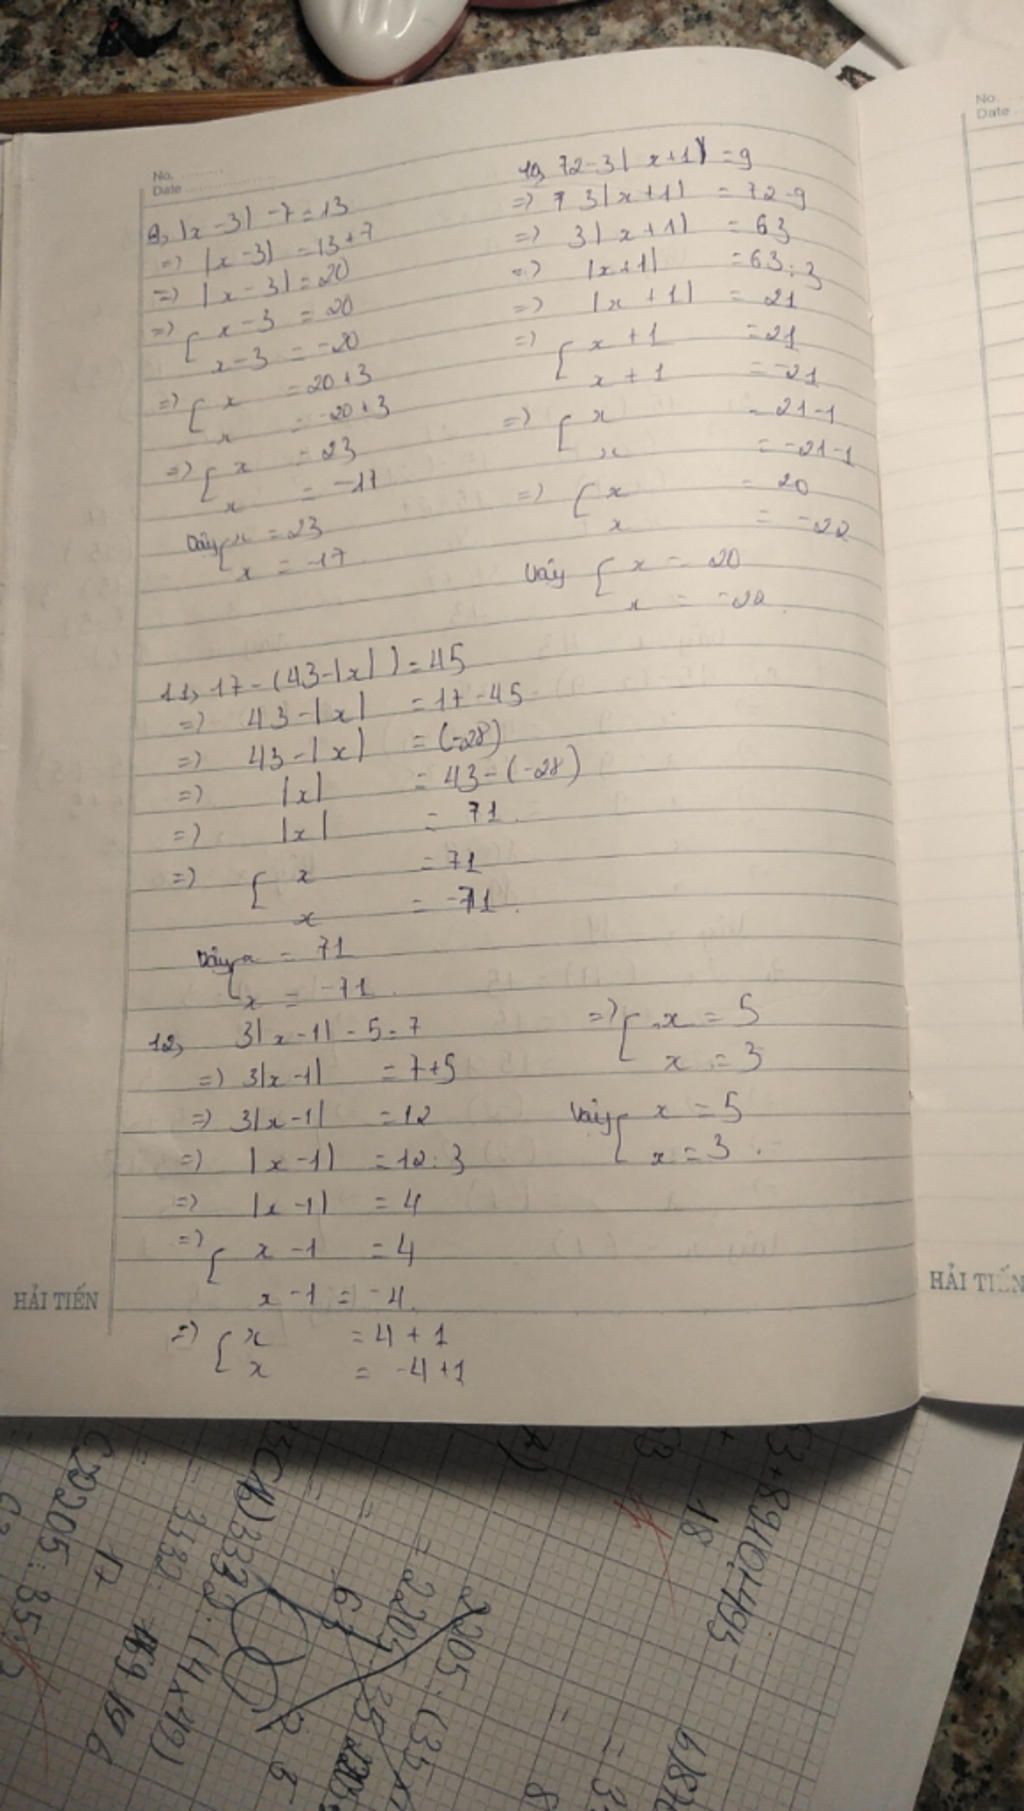 No.
Date
9, |x-3| -7 = 13
=> |x-3| = 13+7
=> |x-3| = 20
=> [ x-3 = 20
x-3 = -20
=> [ x = 20+3
x = -20+3
=> [ x = 23
x = -17
Vậy [ x = 23
x = -17
10, 72-3|x+1| = 9
=> 3|x+1| = 72-9
=> 3|x+1| = 63
=> |x+1| = 63:3
=> |x+1| = 21
=> [ x+1 = 21
x+1 = -21
=> [ x = 21-1
x = -21-1
=> [ x = 20
x = -22
Vậy [ x = 20
x = -22.
11, 17-(43-|x|) = 45
=> 43-|x| = 17-45
=> 43-|x| = (-28)
=> |x| = 43-(-28)
=> |x| = 71.
=> [ x = 71
x = -71.
Vậy [ x = 71
x = -71.
12, 3|x-1| -5 = 7
=> 3|x-1| = 7+5
=> 3|x-1| = 12
=> |x-1| = 12:3
=> |x-1| = 4
=> [ x-1 = 4
x-1 = -4.
=> [ x = 4+1
x = -4+1
=> [ x = 5
x = 3
Vậy [ x = 5
x = 3.
HẢI TIẾN
No.
Date
HẢI TIẾN
18
2205